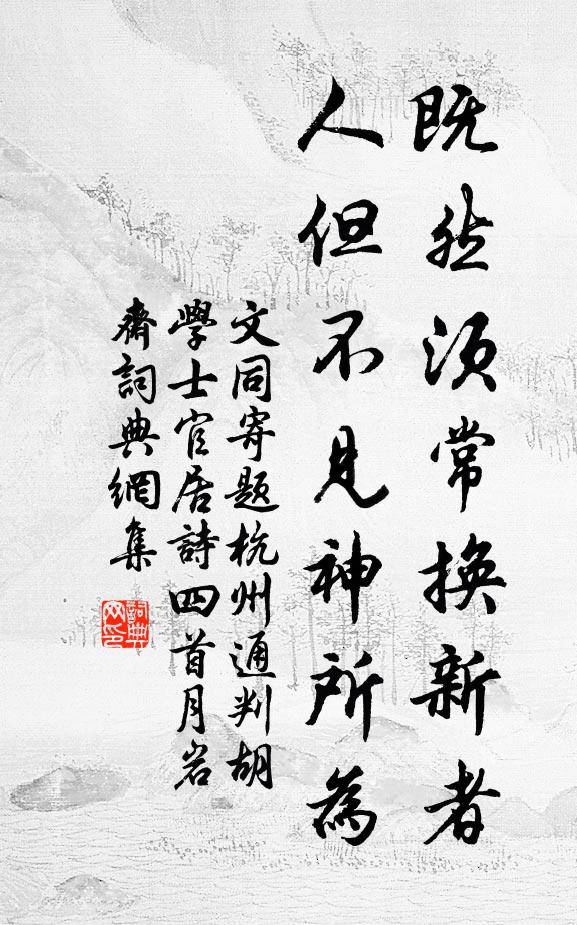 既然须常换新者
人但不见神所為
文同寄题杭州通判胡
學士官居詩四首月岩
齋詞典網集
詞典网印